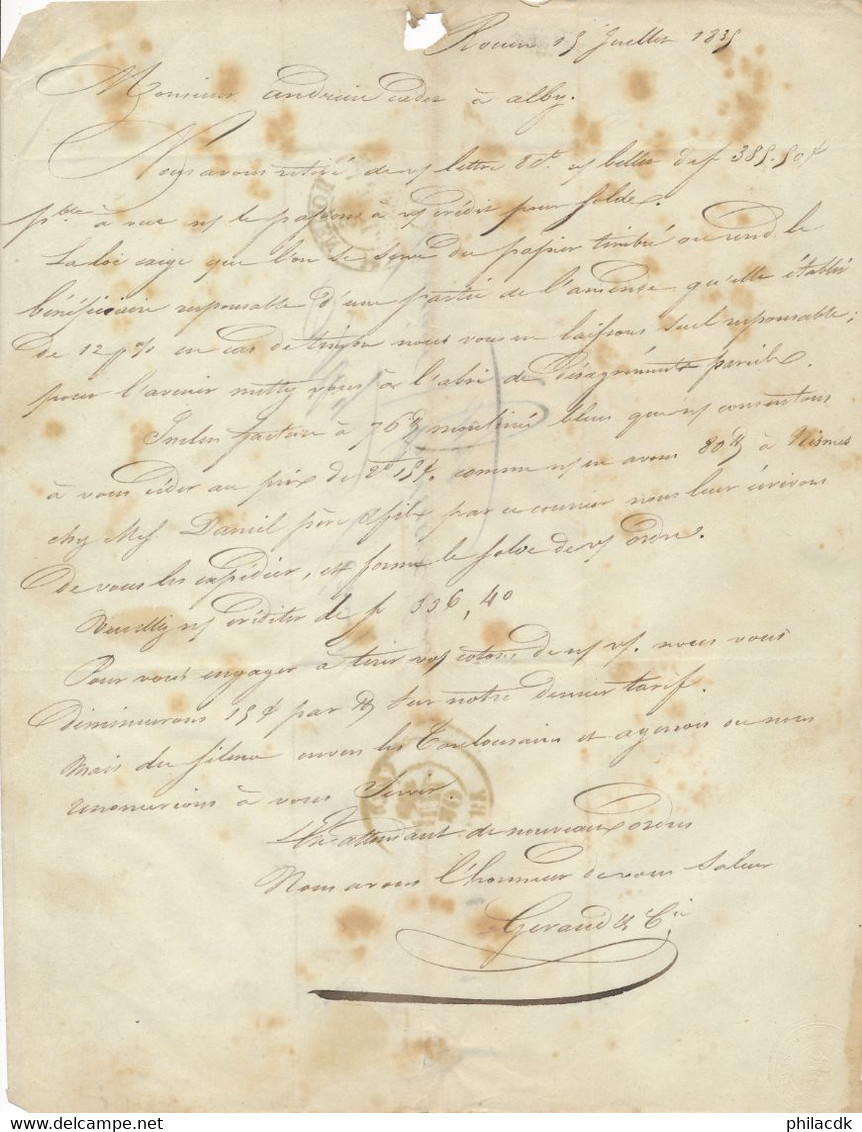 Rouen 15 Juillet 1835
Monsieur andrieu cadet à alby.
Nous avons retiré de v/ lettre 8 Ct. v/ billet de f 385.50 c
pble à vue n/ le passons à v/ crédit pour solde.
La loi exige que l'on se serve du papier timbré ou rend le
bénéficiaire responsable d'une partie de l'amende qu'elle établit
de 12 p% en cas de timbre nous vous en laissons seul responsable;
pour l'avenir mettez vous à l'abri de désagréments pareils.
Inclus facture à 76 mouliné bleus que n/ consentons
à vous céder au prix de comme n/ en avons 80 à Nismes
chez Mrs. Daniel père & fils par ce courrier nous leur écrivons
de vous les expédier, et forme le solde de v/ ordre.
Veuillez n/ créditer de f 336,40
Pour vous engager à tirer vos cotons de n/ nous vous
diminuerons 15 c par sur notre dernier tarif.
Mais du silence envers les Toulousains et agenois ou nous
renoncerions à vous servir.
En attendant de nouveaux ordres
Nous avons l'honneur de vous saluer
Geraud & Cie
philacdk